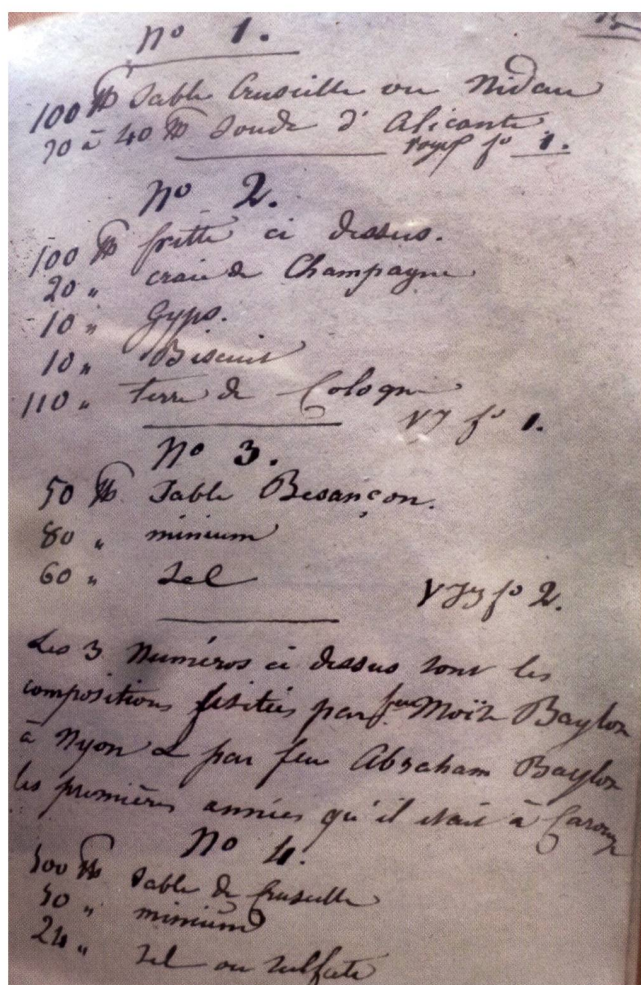 No 1.
100 ℔ Sable Cruseille ou Nidau
20 à 40 ℔ Soude d'Alicante
voyez fo 1.
No 2.
100 ℔ fritte ci dessus.
20 " craie de Champagne
10 " Gyps.
10 " Biscuit
110 " terre de Cologne
fo 1.
No 3.
50 ℔ Sable Besançon.
80 " minium
60 " Sel
fo 2.
Les 3 Numéros ci dessus sont les
compositions usitées par feu Moïse Baylon
à Nyon & par feu Abraham Baylon
les premières années qu'il était à Carouge
No 4.
100 ℔ Sable de Cruseille
50 " minium
24 " Sel ou Sulfate